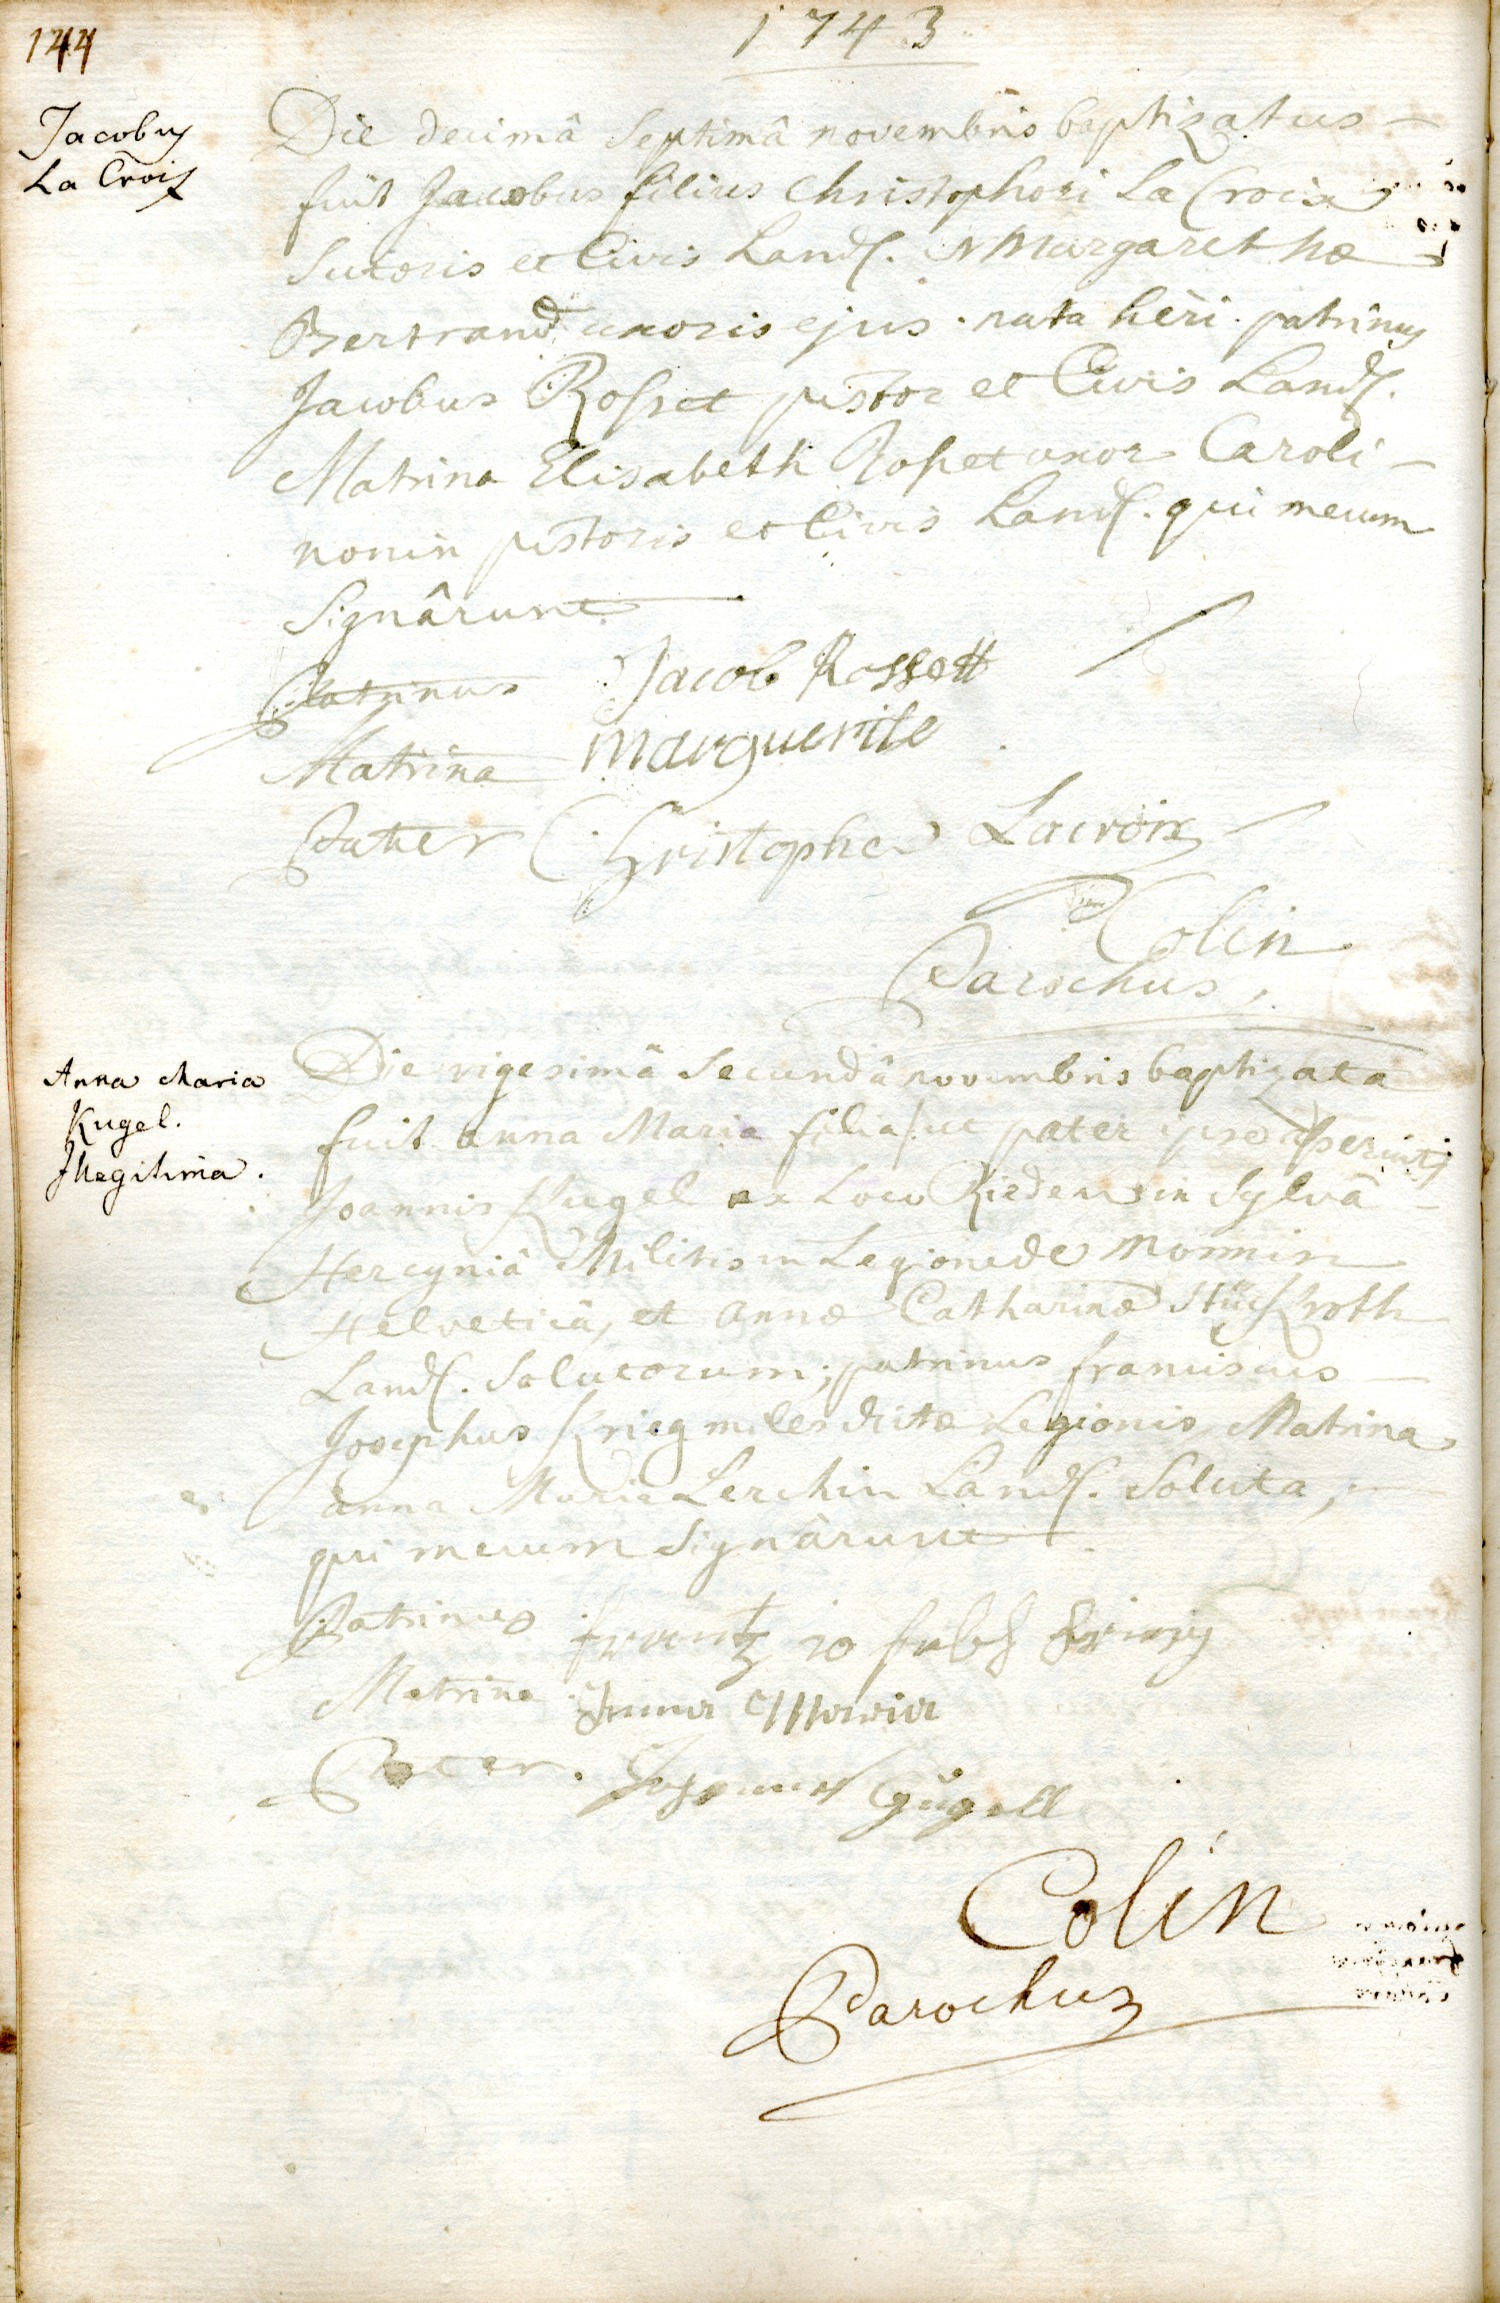 144
1743
Jacobus
La Croix
Die decimâ Septimâ novembris baptizatus
fuit Jacobus filius Christophori La Croix
Sutoris et Civis Land. et Margarethæ
Bertrand uxoris ejus. nata heri. patrinus
Jacobus Rosset pistor et Civis Land.
Matrina Elisabeth Rosset uxor Caroli
nonin pistoris et Civis Land. qui mecum
Signârunt
Patrinus Jacob Rossett
Matrina marguerite
Pater Christophe Lacroix
Colin
Parochus
Anna Maria
Kugel.
Illegitima.
Die vigesimâ Secundâ novembris baptizata
fuit anna Maria filia /: ut pater ipse asseruit :/
Joannis Kugel ex Loco Rieden in Sylvâ
Hercyniâ Militis in Legione de Monnin
Helveticâ, et Annæ Catharinæ
Land. Solutorum; patrinus franciscus
Josephus Krieg miles dictæ Legionis, Matrina
anna Maria Lerchin Land. Soluta,
qui mecum Signârunt
Patrinus frantz
Matrina Anna Maria
Pater. Johannes Gügell
Colin
Parochus